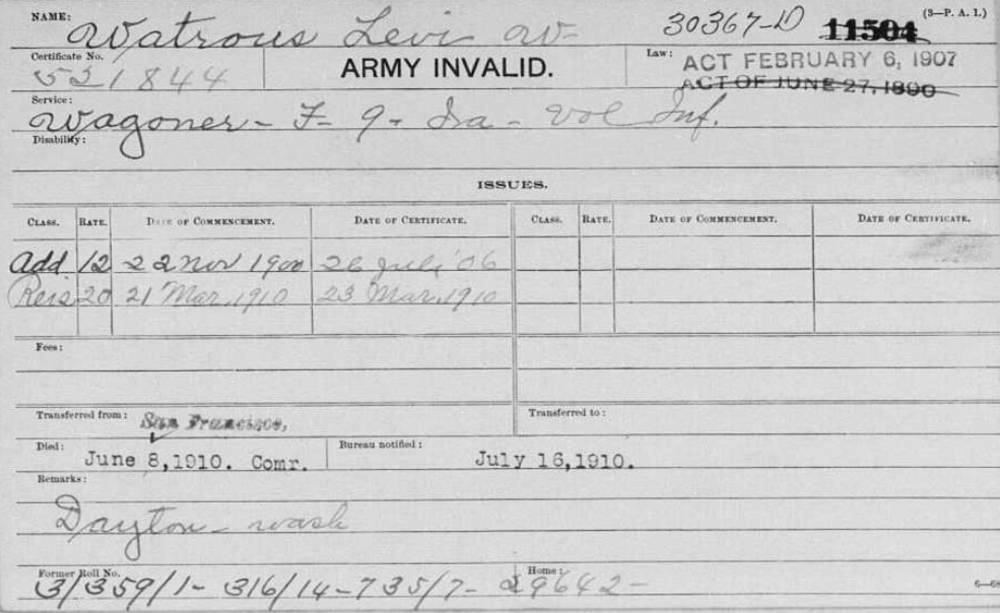 NAME: Watrous Levi W- 30367-D 11504 (3—P. A. I.)
Certificate No. 521844 ARMY INVALID. Law: ACT FEBRUARY 6, 1907
ACT OF JUNE 27, 1890
Service: Wagoner - F - 9 - Ia - Vol Inf.
Disability:
ISSUES.
CLASS. RATE. DATE OF COMMENCEMENT. DATE OF CERTIFICATE. CLASS. RATE. DATE OF COMMENCEMENT. DATE OF CERTIFICATE.
Add 12 22 Nov 1900 26 July '06
Reis 20 21 Mar. 1910 23 Mar. 1910
Fees:
Transferred from: San Francisco, Transferred to:
Died: June 8, 1910. Comr. Bureau notified: July 16, 1910.
Remarks:
Dayton - Wash
Former Roll No. 3/359/1- 316/14-735/7- Home: 29642-